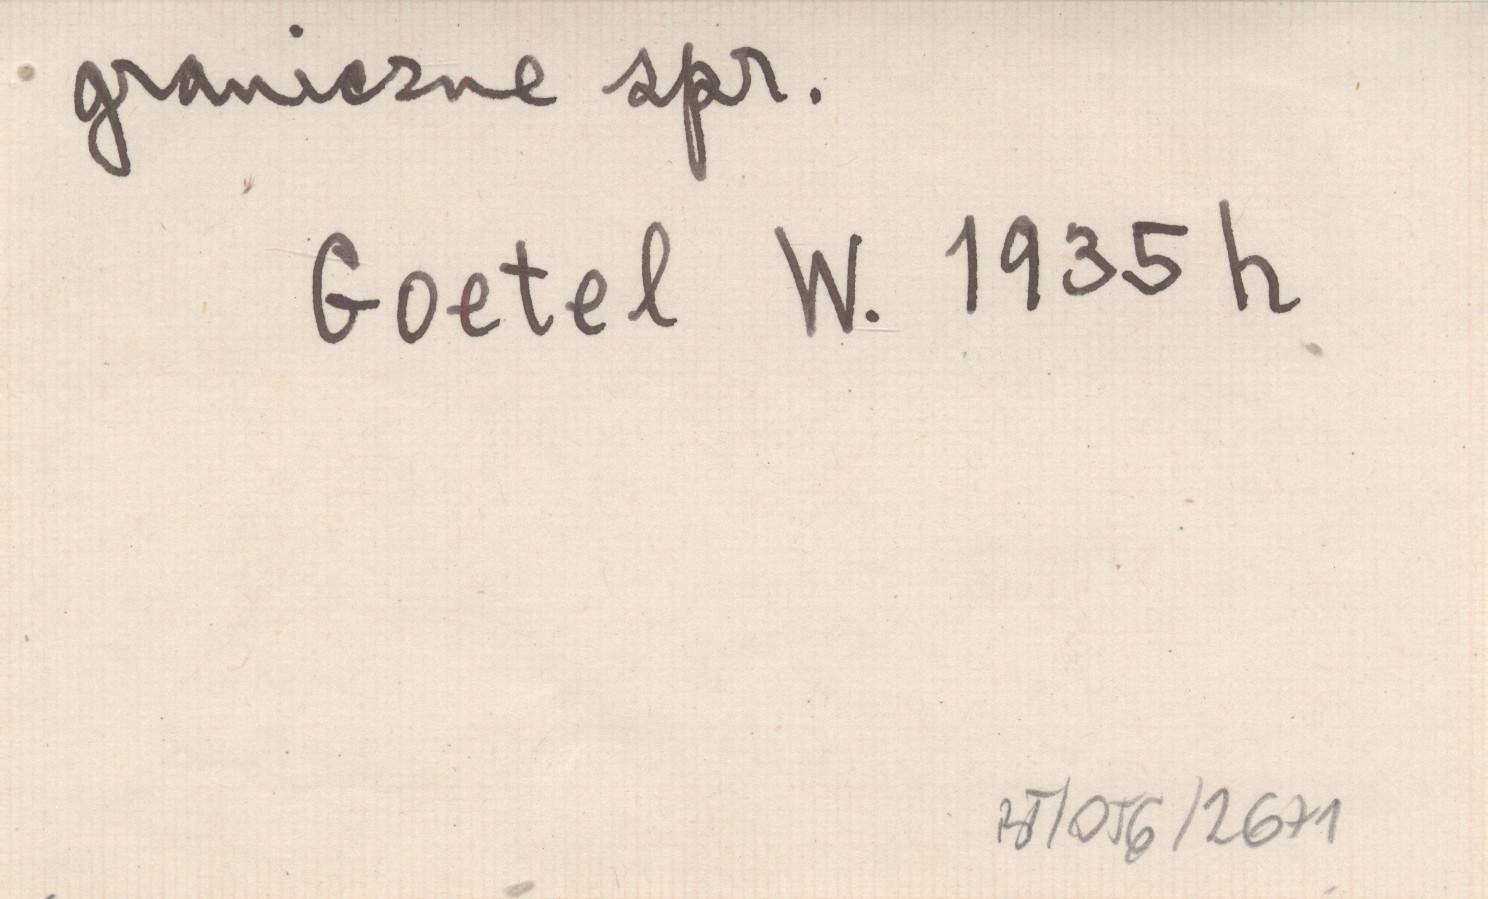 graniczne spr.
Goetel W. 1935 h
/2671